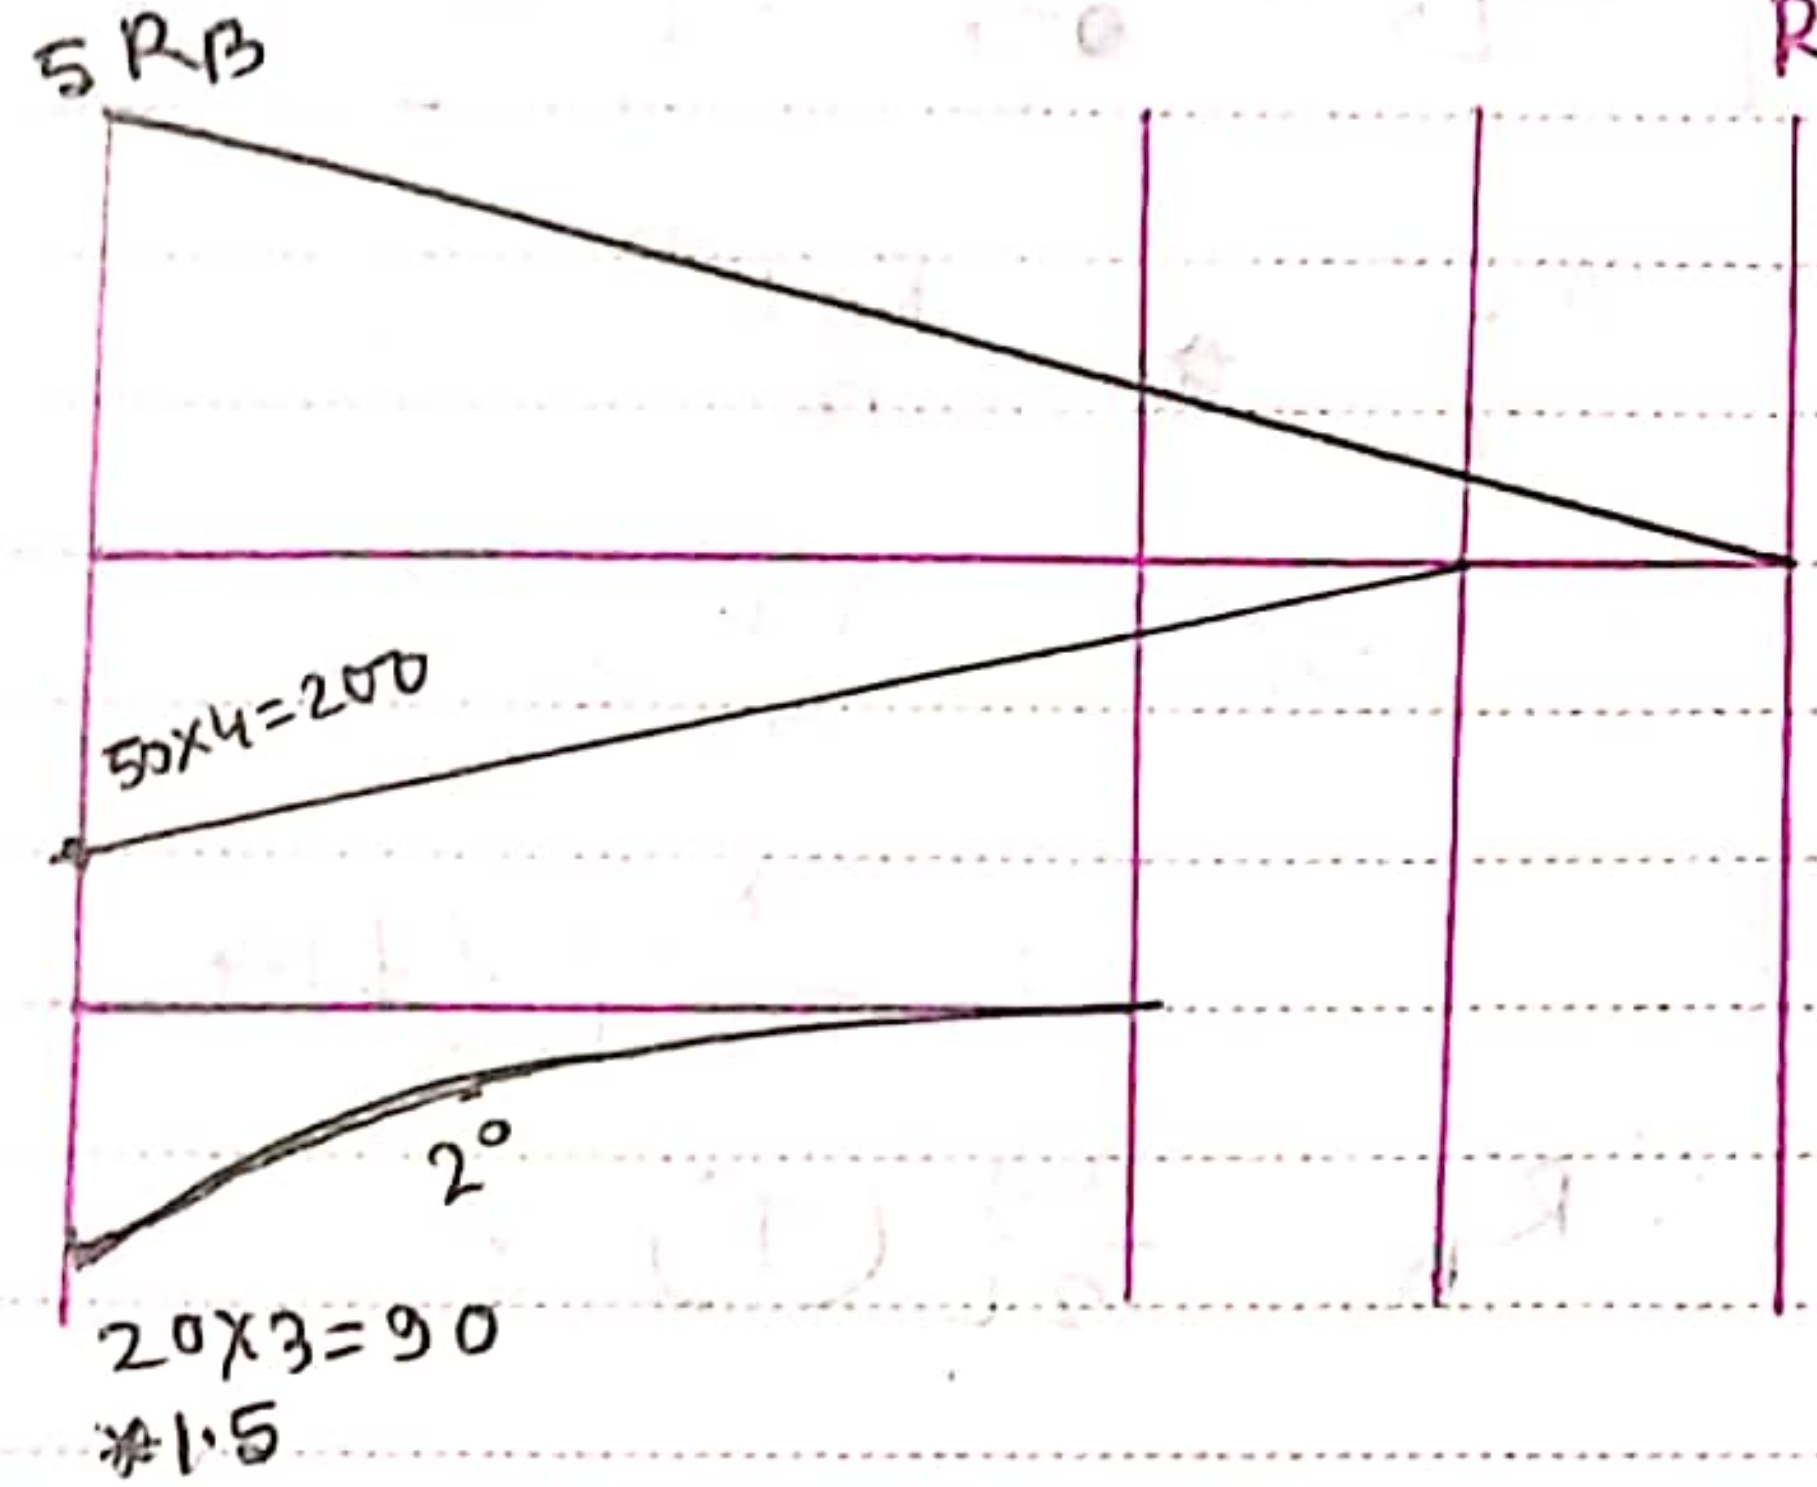 5 RB
R
50x4=200
2°
20x3=90
*1.5